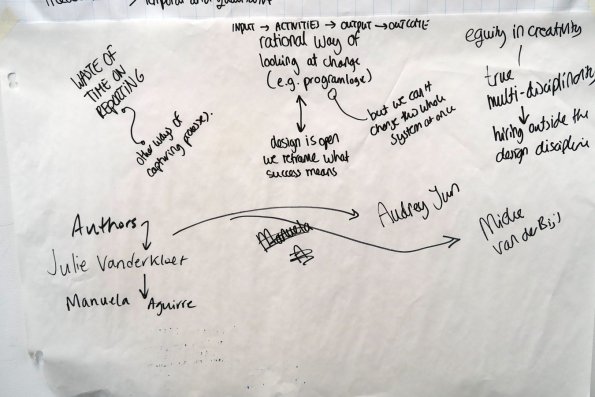 INPUT → ACTIVITIES → OUTPUT → OUTCOME
rational way of
looking at change
(e.g. programlogc)
but we can't
change the whole
system at once
design is open
we reframe what
success means
WASTE OF
TIME ON
REPORTING
other ways of
capturing process).
equity in creativity
true
multi-disciplinarity
hiring outside the
design discipline
Authors
Julie Vanderkloet
Manuela Aguirre
Manuela
A
Audrey Jun
Mieke
van der Bijl